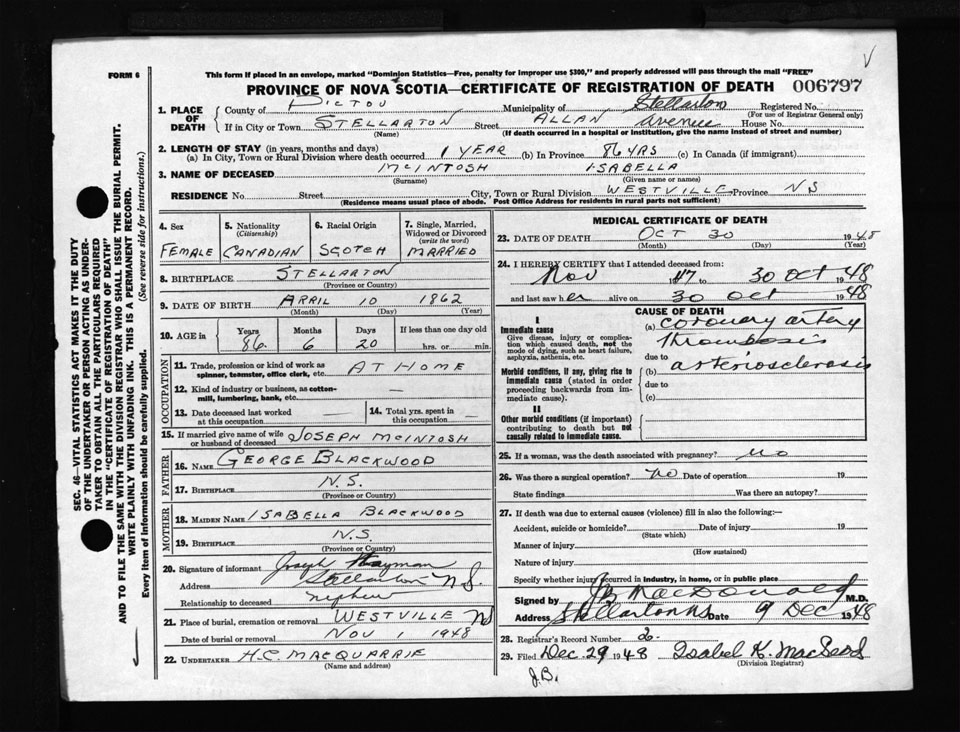 FORM 6
This form if placed in an envelope, marked "Dominion Statistics—Free, penalty for improper use $300," and properly addressed will pass through the mail "FREE"
PROVINCE OF NOVA SCOTIA—CERTIFICATE OF REGISTRATION OF DEATH 006797
1. PLACE OF DEATH
County of PICTOU Municipality of Stellarton Registered No.
(For use of Registrar General only)
If in City or Town STELLARTON Street ALLAN Avenue House No.
(Name) (If death occurred in a hospital or institution, give the name instead of street and number)
2. LENGTH OF STAY (in years, months and days)
(a) In City, Town or Rural Division where death occurred 1 YEAR (b) In Province 86 YRS (c) In Canada (if immigrant)
3. NAME OF DECEASED MCINTOSH ISABELLA
(Surname) (Given name or names)
RESIDENCE No. Street City, Town or Rural Division WESTVILLE Province NS
(Residence means usual place of abode. Post Office Address for residents in rural parts not sufficient)
4. Sex FEMALE
5. Nationality (Citizenship) CANADIAN
6. Racial Origin SCOTCH
7. Single, Married, Widowed or Divorced (write the word) MARRIED
8. BIRTHPLACE STELLARTON
(Province or Country)
9. DATE OF BIRTH APRIL 10 1862
(Month) (Day) (Year)
10. AGE in Years Months Days If less than one day old
86 6 20 hrs. or min.
OCCUPATION
11. Trade, profession or kind of work as spinner, teamster, office clerk, etc. AT HOME
12. Kind of industry or business, as cotton-mill, lumbering, bank, etc. —
13. Date deceased last worked at this occupation —
14. Total yrs. spent in this occupation —
15. If married give name of wife or husband of deceased JOSEPH MCINTOSH
FATHER
16. NAME GEORGE BLACKWOOD
17. BIRTHPLACE N.S.
(Province or Country)
MOTHER
18. MAIDEN NAME ISABELLA BLACKWOOD
19. BIRTHPLACE N.S.
(Province or Country)
20. Signature of informant Joseph Hayman
Address Stellarton N.S.
Relationship to deceased nephew
21. Place of burial, cremation or removal WESTVILLE NS
Date of burial or removal NOV 1 1948
22. UNDERTAKER H.C. MACQUARRIE
(Name and address)
MEDICAL CERTIFICATE OF DEATH
23. DATE OF DEATH OCT 30 1948
(Month) (Day) (Year)
24. I HEREBY CERTIFY that I attended deceased from:
Nov 47 30 Oct 1948
and last saw her alive on 30 Oct 1948
CAUSE OF DEATH
I
Immediate cause
Give disease, injury or complication which caused death, not the mode of dying, such as heart failure, asphyxia, asthenia, etc.
(a) coronary artery
thrombosis
due to
Morbid conditions, if any, giving rise to immediate cause (stated in order proceeding backwards from immediate cause).
(b) arteriosclerosis
due to
(c)
II
Other morbid conditions (if important) contributing to death but not causally related to immediate cause.
25. If a woman, was the death associated with pregnancy? No
26. Was there a surgical operation? no Date of operation 19
State findings Was there an autopsy?
27. If death was due to external causes (violence) fill in also the following:—
Accident, suicide or homicide? Date of injury 19
(State which)
Manner of injury
(How sustained)
Nature of injury
Specify whether injury occurred in industry, in home, or in public place
Signed by JB MacDonald M.D.
Address Stellarton NS Date 9 Dec 1948
28. Registrar's Record Number 2
29. Filed Dec. 29 1948 Isabel K. MacLeod
(Division Registrar)
J.B.
SEC. 46—VITAL STATISTICS ACT MAKES IT THE DUTY
OF THE UNDERTAKER OR PERSON ACTING AS UNDER-
TAKER TO OBTAIN ALL THE PARTICULARS REQUIRED
IN THE "CERTIFICATE OF REGISTRATION OF DEATH"
AND TO FILE THE SAME WITH THE DIVISION REGISTRAR WHO SHALL ISSUE THE BURIAL PERMIT.
WRITE PLAINLY WITH UNFADING INK. THIS IS A PERMANENT RECORD.
Every item of information should be carefully supplied. (See reverse side for instructions.)